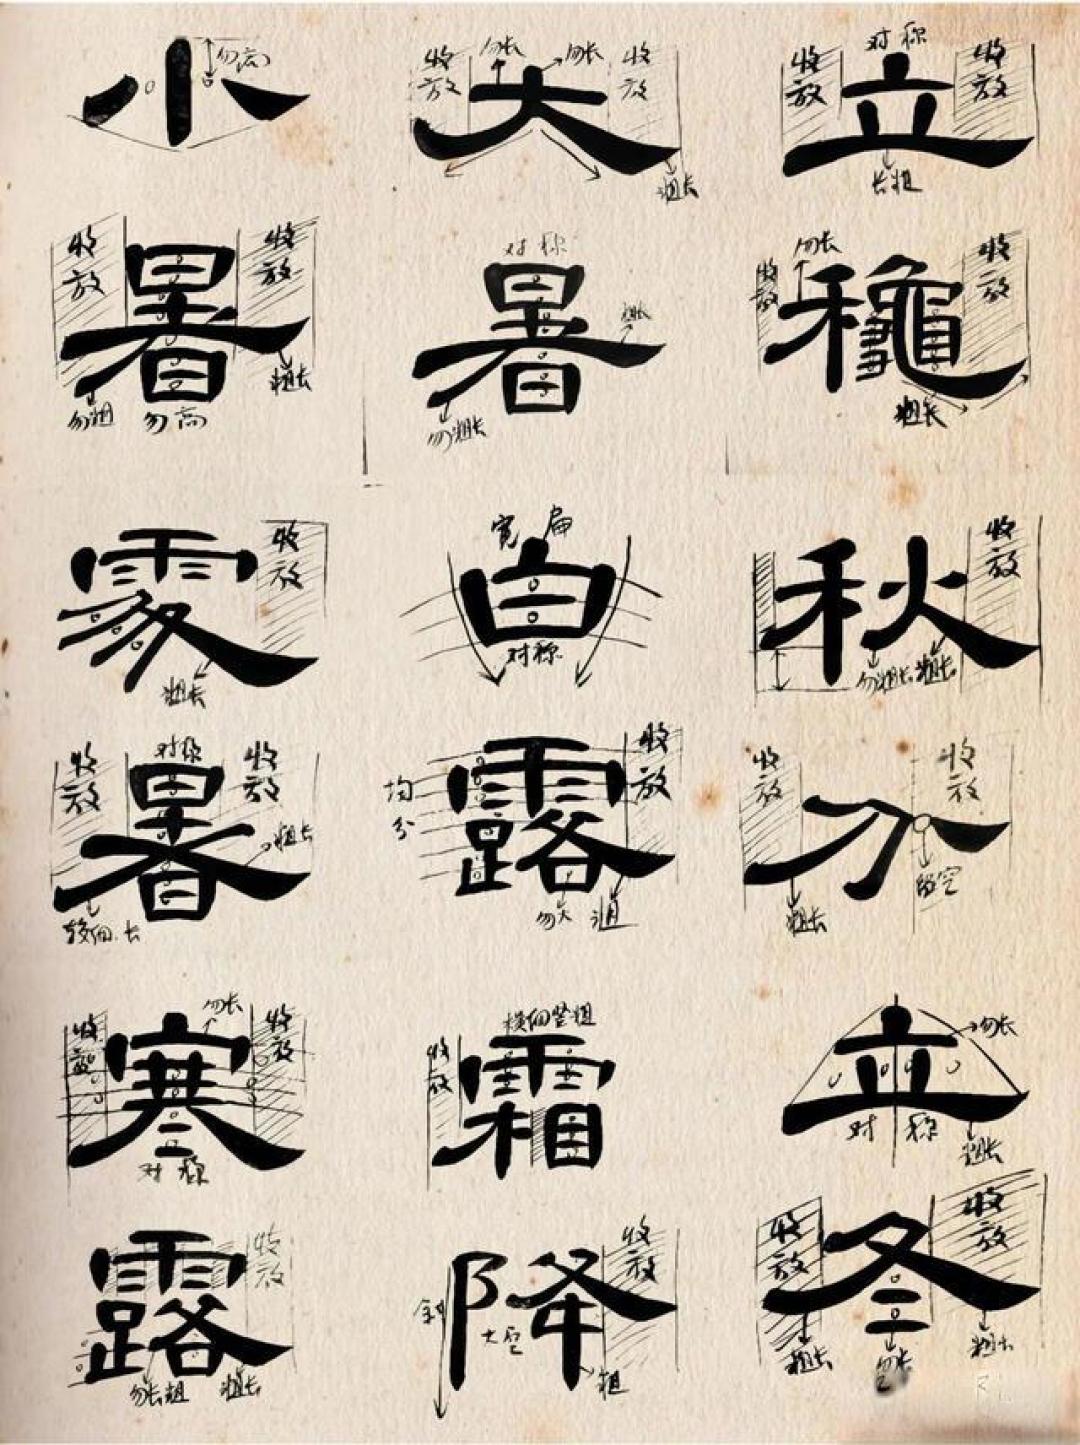 小
勿高
收放
勿长
勿长
收放
大
粗长
对称
收放
收放
立
长粗
收放
收放
暑
勿粗
勿高
粗长
对称
暑
粗长
勿粗长
勿长
收放
收放
穐
粗长
收放
處
粗长
宽扁
白
对称
收放
秋
勿粗长
粗长
收放
对称
收放
暑
粗长
较细长
均分
收放
露
勿大
粗
收放
收放
分
留空
粗长
勿长
收放
收放
寒
对称
横细竖粗
收放
霜
勿长
立
对称
粗长
收放
露
勿长粗
粗长
收放
斜
降
大空
粗
收放
收放
冬
粗长
勿长
粗长